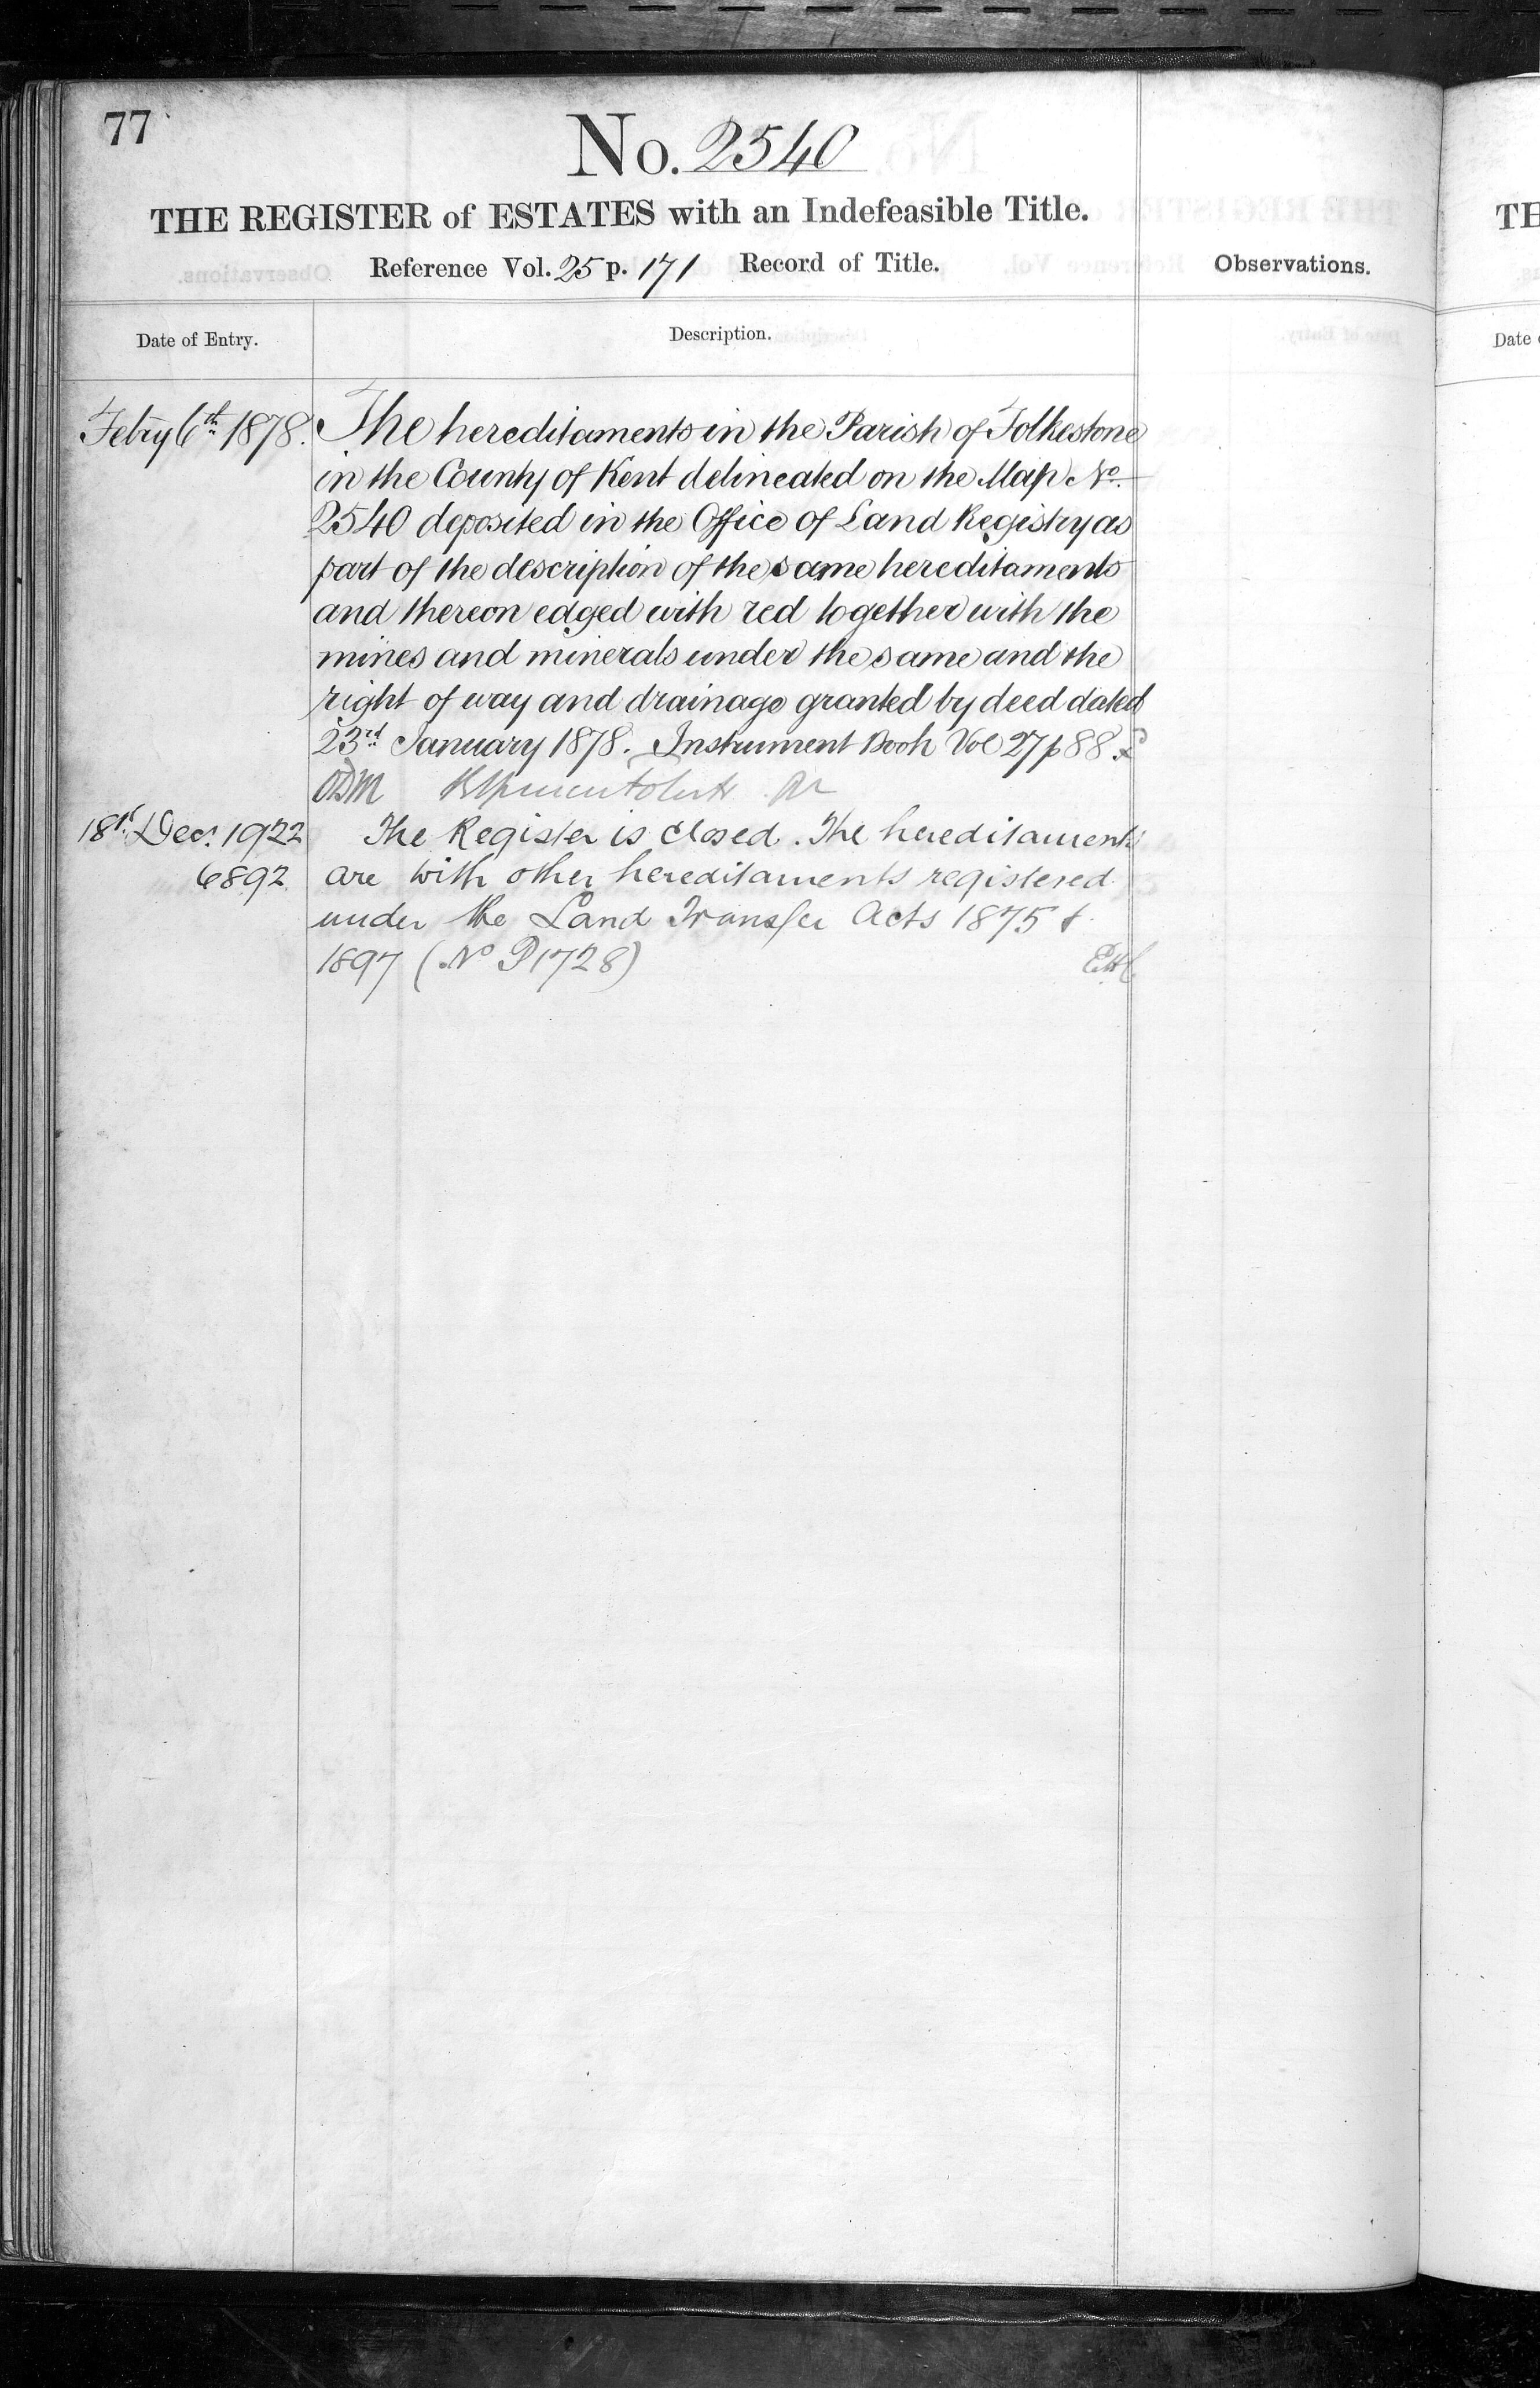 77
No. 2540
THE REGISTER of ESTATES with an Indefeasible Title.
Reference Vol. 25 p. 171 Record of Title.
Observations.
Date of Entry.
Description.
Febry 6th 1878.
The hereditaments in the Parish of Folkestone
in the County of Kent delineated on the Map No.
2540 deposited in the Office of Land Registry as
part of the description of the same hereditaments
and thereon edged with red together with the
mines and minerals under the same and the
right of way and drainage granted by deed dated
23rd January 1878. Instrument Book Vol 27 p 88
ODM
18th Decr. 1922
6892
The Register is closed. The hereditaments
are with other hereditaments registered
under the Land Transfer Acts 1875 &
1897 (No P1728)
TH
Date